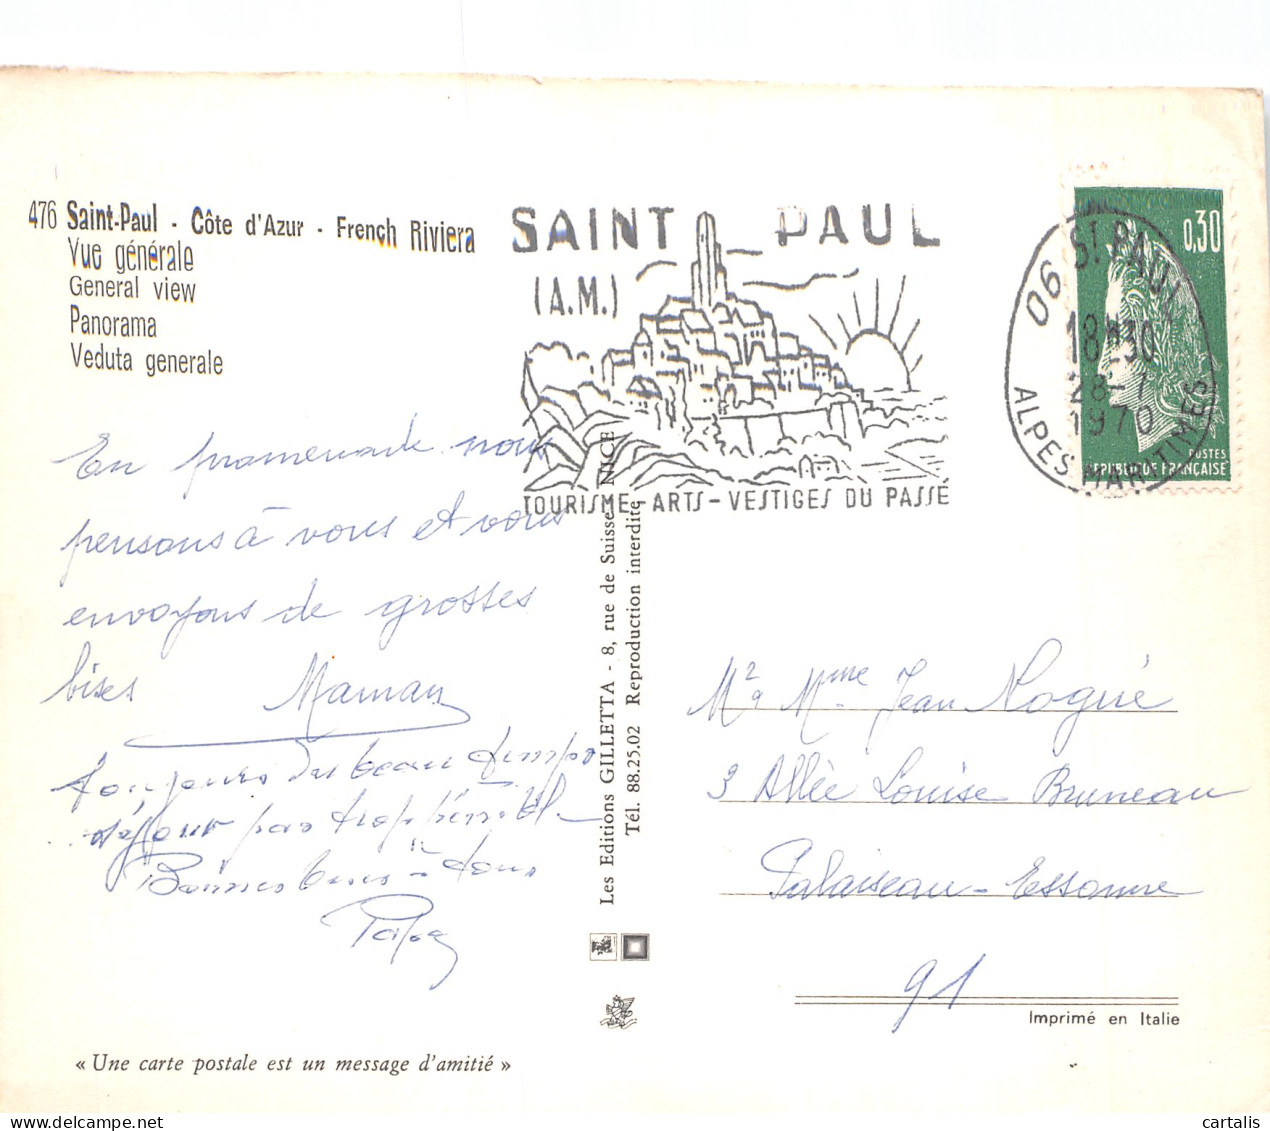 476 Saint-Paul - Côte d'Azur - French Riviera
Vue générale
General view
Panorama
Veduta generale
SAINT PAUL
(A.M.)
TOURISME - ARTS - VESTIGES DU PASSÉ
0,30
POSTES
REPUBLIQUE FRANÇAISE
06 ST PAUL
18H30
28-7
1970
ALPES MARITIMES
En promenade nous
pensons à vous et vous
envoyons de grosses
bises Maman
toujours du beau temps
séjour pas trop pénible
Bonnes bises à tous
Les Editions GILLETTA - 8, rue de Suisse NICE
Tél. 88.25.02 Reproduction interdite
Mr & Mme Jean Nogué
3 Allée Louise Bruneau
Palaiseau - Essonne
91
Imprimé en Italie
« Une carte postale est un message d'amitié »
cartalis